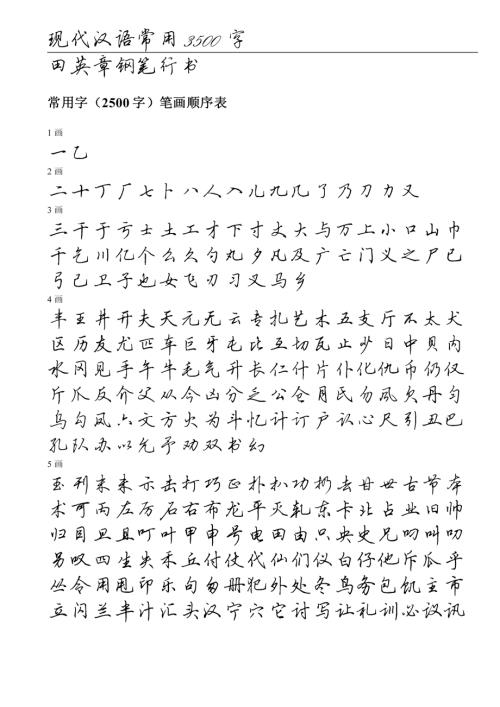 现代汉语常用 3500 字
田英章钢笔行书
常用字（2500 字）笔画顺序表
1 画
一乙
2 画
二十丁厂七卜八人入儿九几了乃刀力又
3 画
三干于亏士土工才下寸丈大与万上小口山巾
千乞川亿个么久勺丸夕凡及广亡门义之尸已
弓己卫子也女飞刃习叉马乡
4 画
丰王井开夫天元无云专扎艺木五支厅不太犬
区历友尤匹车巨牙屯比互切瓦止少日中贝内
水冈见手午牛毛气升长仁什片仆化仇币仍仅
斤爪反介父从今凶分乏公仓月氏勿风欠丹匀
乌勾凤六文方火为斗忆计订户认心尺引丑巴
孔队办以允予劝双书幻
5 画
玉刊末未示击打巧正扑扒功扔去甘世古节本
术可丙左厉石右布龙平灭轧东卡北占业旧帅
归目旦且叮叶甲申号电田由只央史兄叼叫叨
另叹四生失禾丘付仗代仙们仪白仔他斥瓜乎
丛令用甩印乐句匆册犯外处冬鸟务包饥主市
立闪兰半汁汇头汉宁穴它讨写让礼训必议讯